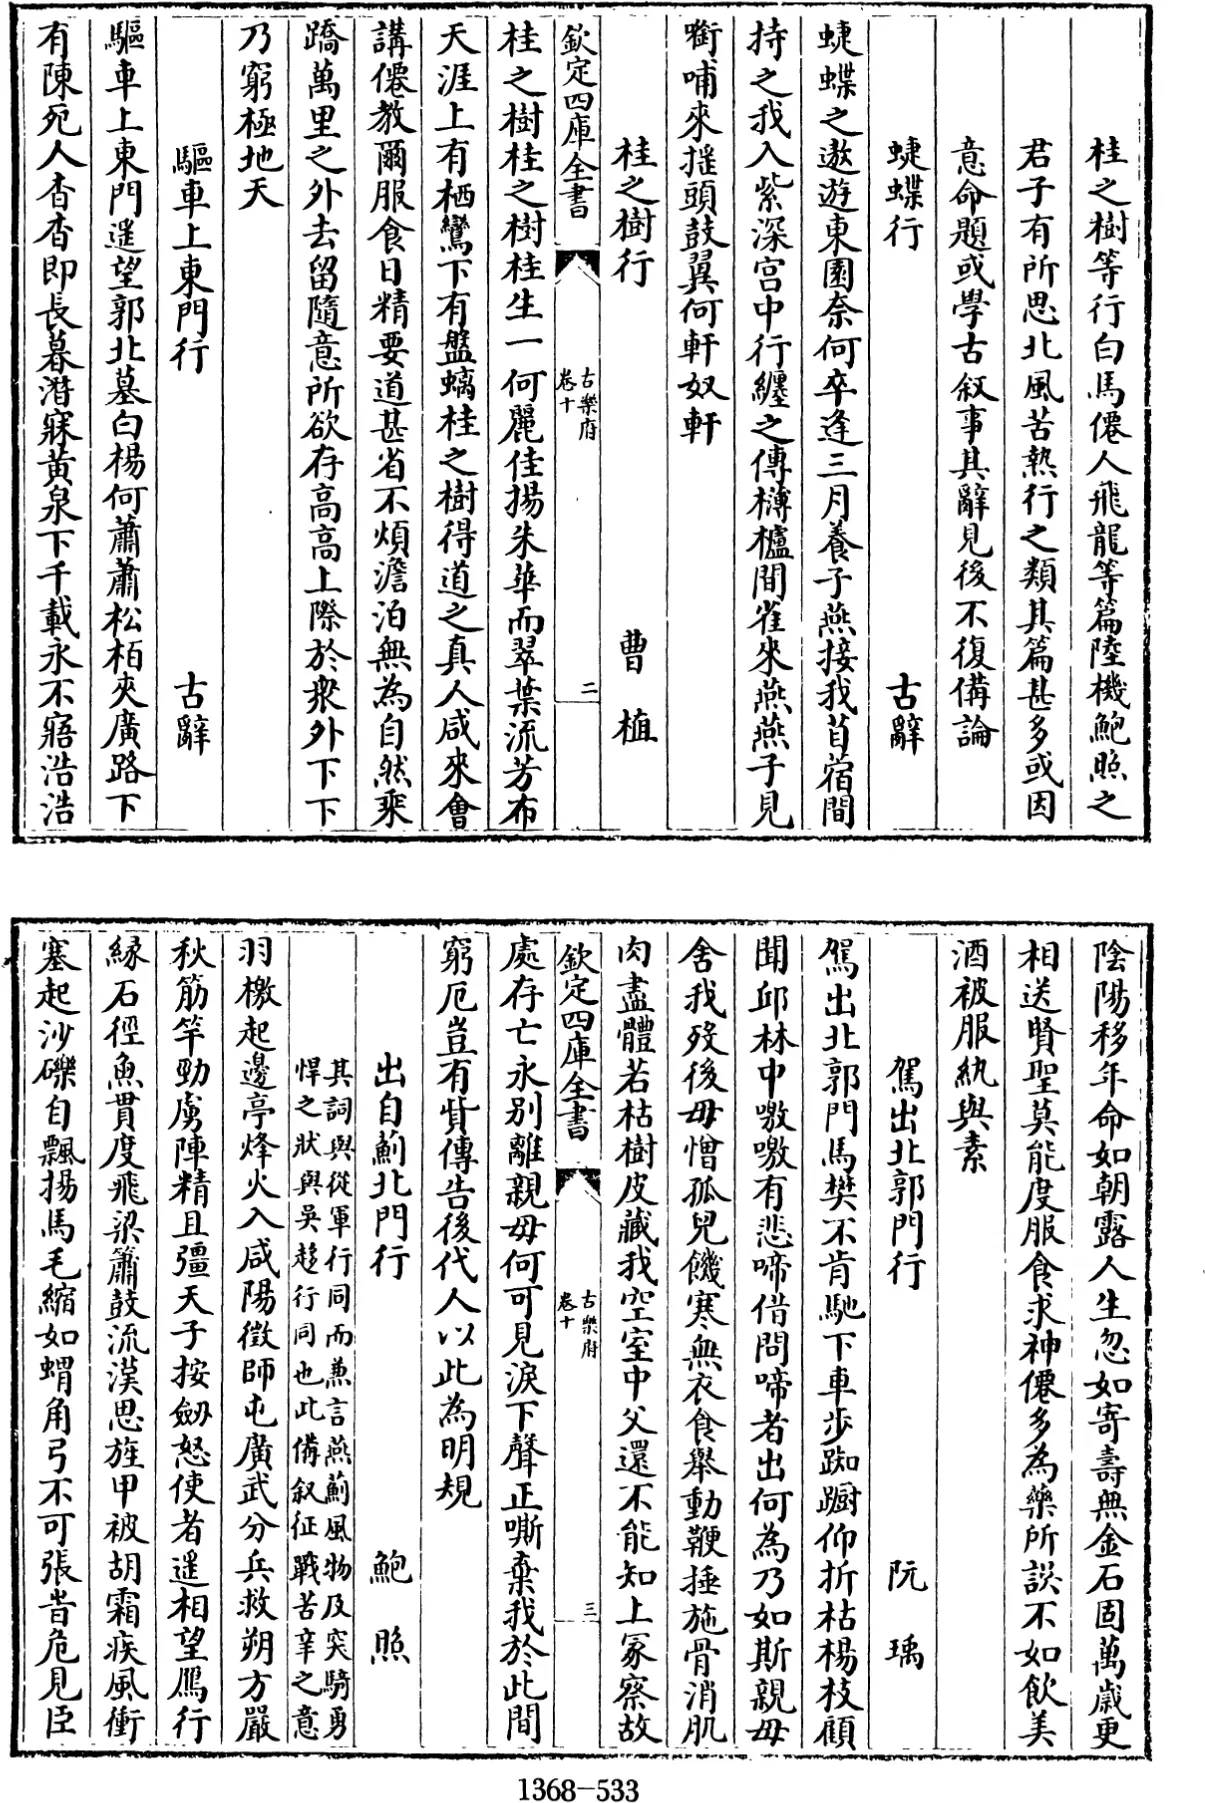 桂之樹等行白馬僊人飛龍等篇陸機鮑照之
君子有所思北風苦熱行之類其篇甚多或因
意命題或學古叙事其辭見後不復備論
蜨蝶行 古辭
蜨蝶之遨遊東園奈何卒逢三月養子燕接我苜蓿間
持之我入紫深宫中行纒之傅欂櫨間雀来燕燕子見
銜哺來揺頭鼓翼何軒奴軒
桂之樹行 曹植
欽定四庫全書 古樂府 卷十 二
桂之樹桂之樹桂生一何麗佳揚朱華而翠葉流芳布
天涯上有栖鸞下有盤螭桂之樹得道之真人咸來會
講僊教爾服食日精要道甚省不煩澹泊無為自然乘
蹻萬里之外去留隨意所欲存高高上際於衆外下下
乃窮極地天
驅車上東門行 古辭
驅車上東門遥望郭北墓白楊何蕭蕭松柏夾廣路下
有陳死人杳杳即長暮潛寐黄泉下千載永不寤浩浩
陰陽移年命如朝露人生忽如寄壽無金石固萬歲更
相送賢聖莫能度服食求神僊多為藥所誤不如飲美
酒被服紈與素
駕出北郭門行 阮瑀
駕出北郭門馬樊不肯馳下車步踟蹰仰折枯楊枝顧
聞邱林中噭噭有悲啼借問啼者出何為乃如斯親母
舍我殁後母憎孤兒饑寒無衣食舉動鞭捶施骨消肌
肉盡體若枯樹皮藏我空室中父還不能知上冢察故
欽定四庫全書 古樂府 卷十 三
處存亡永别離親母何可見淚下聲正嘶棄我於此間
窮厄豈有貲傳告後代人以此為明規
出自薊北門行 鮑照
其詞與從軍行同而兼言燕薊風物及突騎勇
悍之狀與吴趨行同也此備叙征戰苦辛之意
羽檄起邊亭烽火入咸陽徵師屯廣武分兵救朔方嚴
秋筋竿勁虜陣精且彊天子按劒怒使者遥相望鴈行
緣石徑魚貫度飛梁簫鼓流漢思旌甲被胡霜疾風衝
塞起沙礫自飄揚馬毛縮如蝟角弓不可張昔危見臣
1368-533